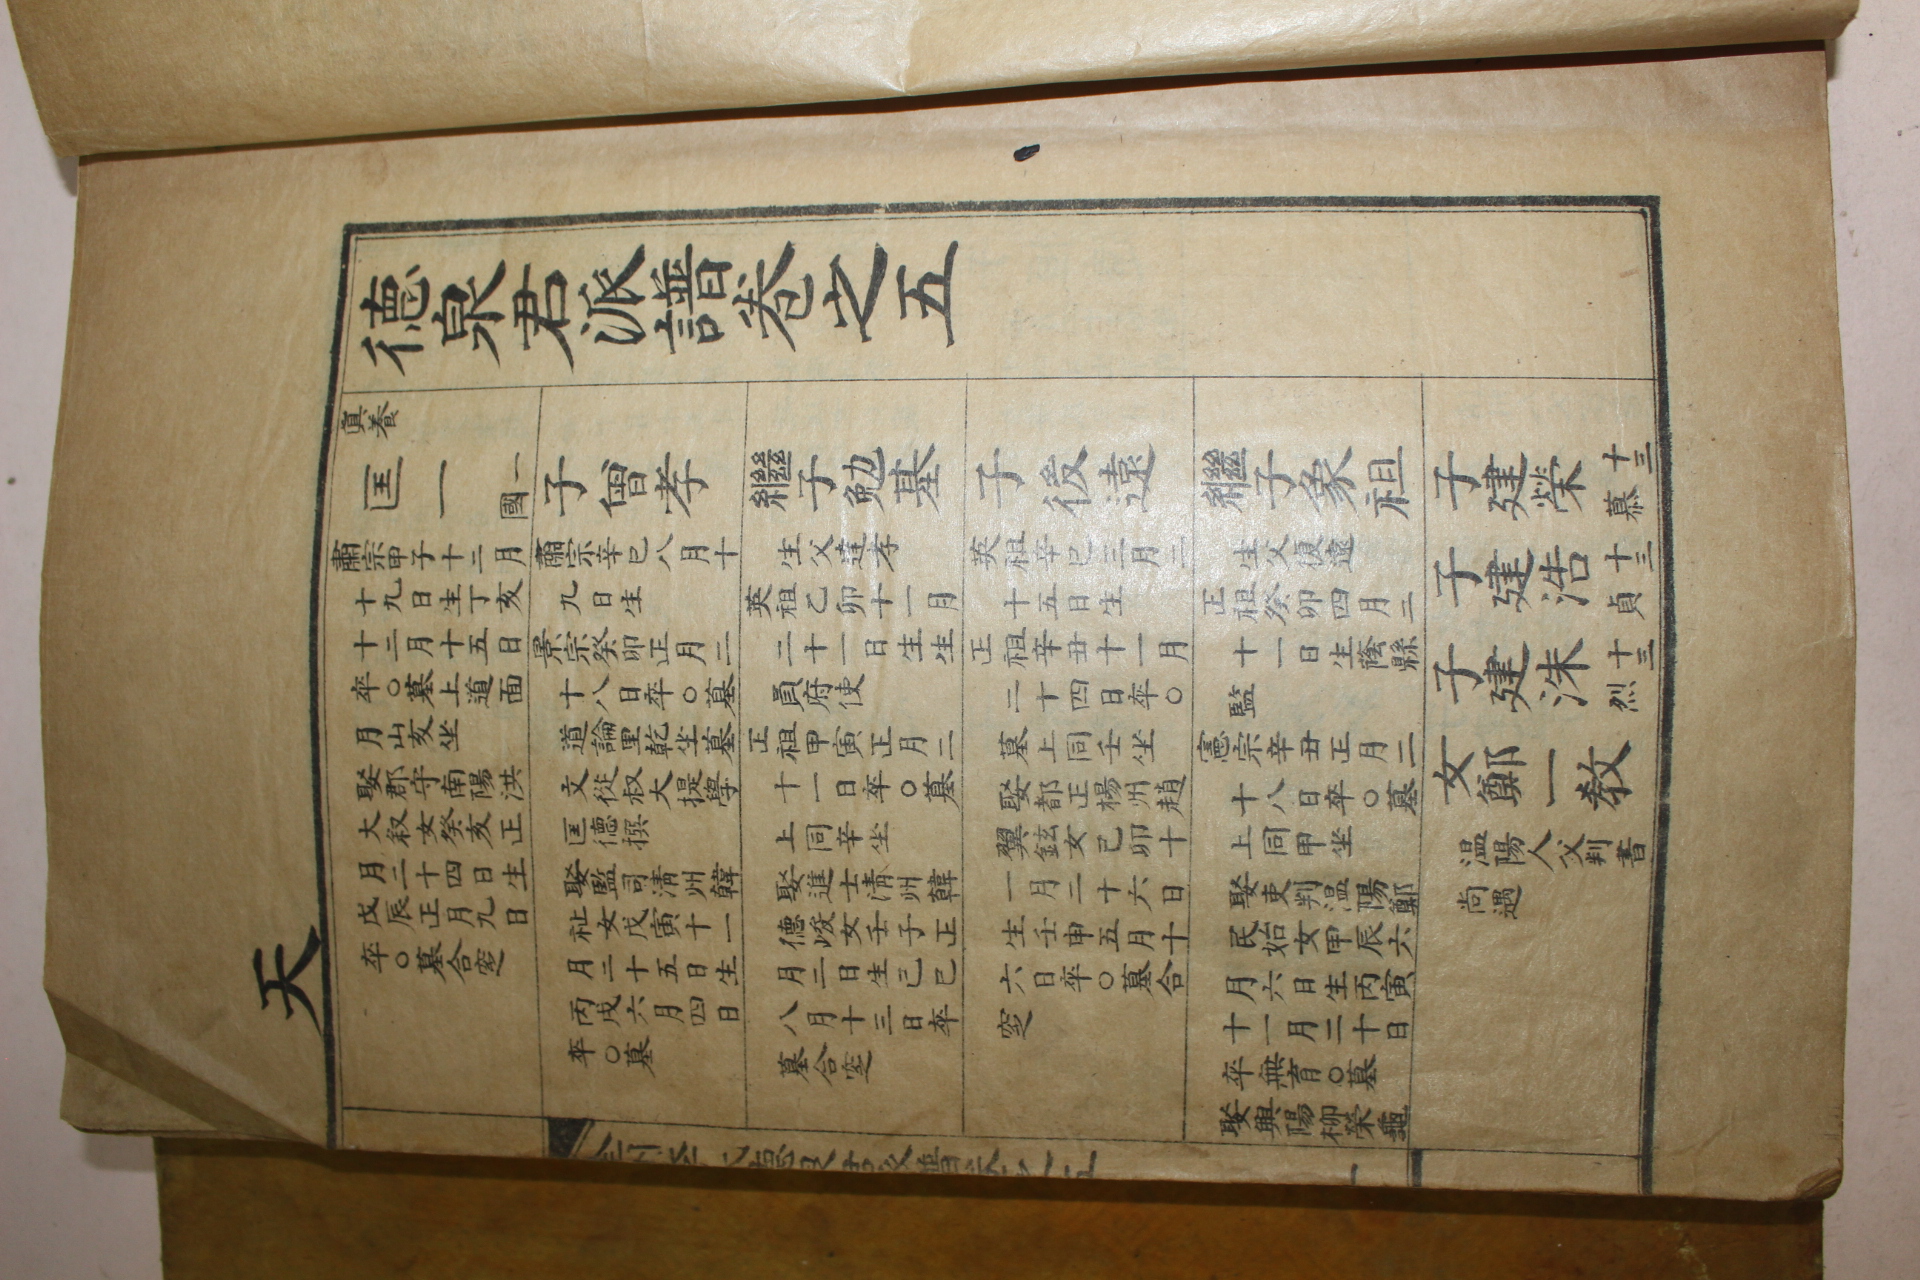 德泉君派譜卷之五
眞養
匡一
國一
肅宗甲子十二月
十九日生丁亥
十二月十五日
卒○墓上道面
月山亥坐
娶郡守南陽洪
大叙女癸亥正
月二十四日生
戊辰正月九日
卒○墓合窆
子曾孝
肅宗辛巳八月十
九日生
景宗癸卯正月二
十八日卒○墓
道論里乾坐墓
文從叔大提學
匡德撰
娶監司淸州韓
祉女戊寅十一
月二十五日生
丙戌六月四日
卒○墓
繼子勉基
生父達孝
英祖乙卯十一月
二十一日生生
員府使
正祖甲寅正月二
十一日卒○墓
上同辛坐
娶進士淸州韓
德峻女壬子正
月二日生己巳
八月十三日卒
墓合窆
子後遠
英祖辛巳三月二
十五日生
正祖辛丑十一月
二十四日卒○
墓上同壬坐
娶都正楊州趙
翼鉉女己卯十
一月二十六日
生壬申五月十
六日卒○墓合
窆
繼子象祖
生父復遠
正祖癸卯四月三
十一日生蔭縣
監
憲宗辛丑正月二
十八日卒○墓
上同甲坐
娶吏判溫陽鄭
民始女甲辰六
月六日生丙寅
十一月二十日
卒無育○墓
娶興陽柳榮龜
子建榮
十三
慕
子建浩
十三
貞
子建洙
十三
烈
女鄭一敎
溫陽人父判書
尙遇
天